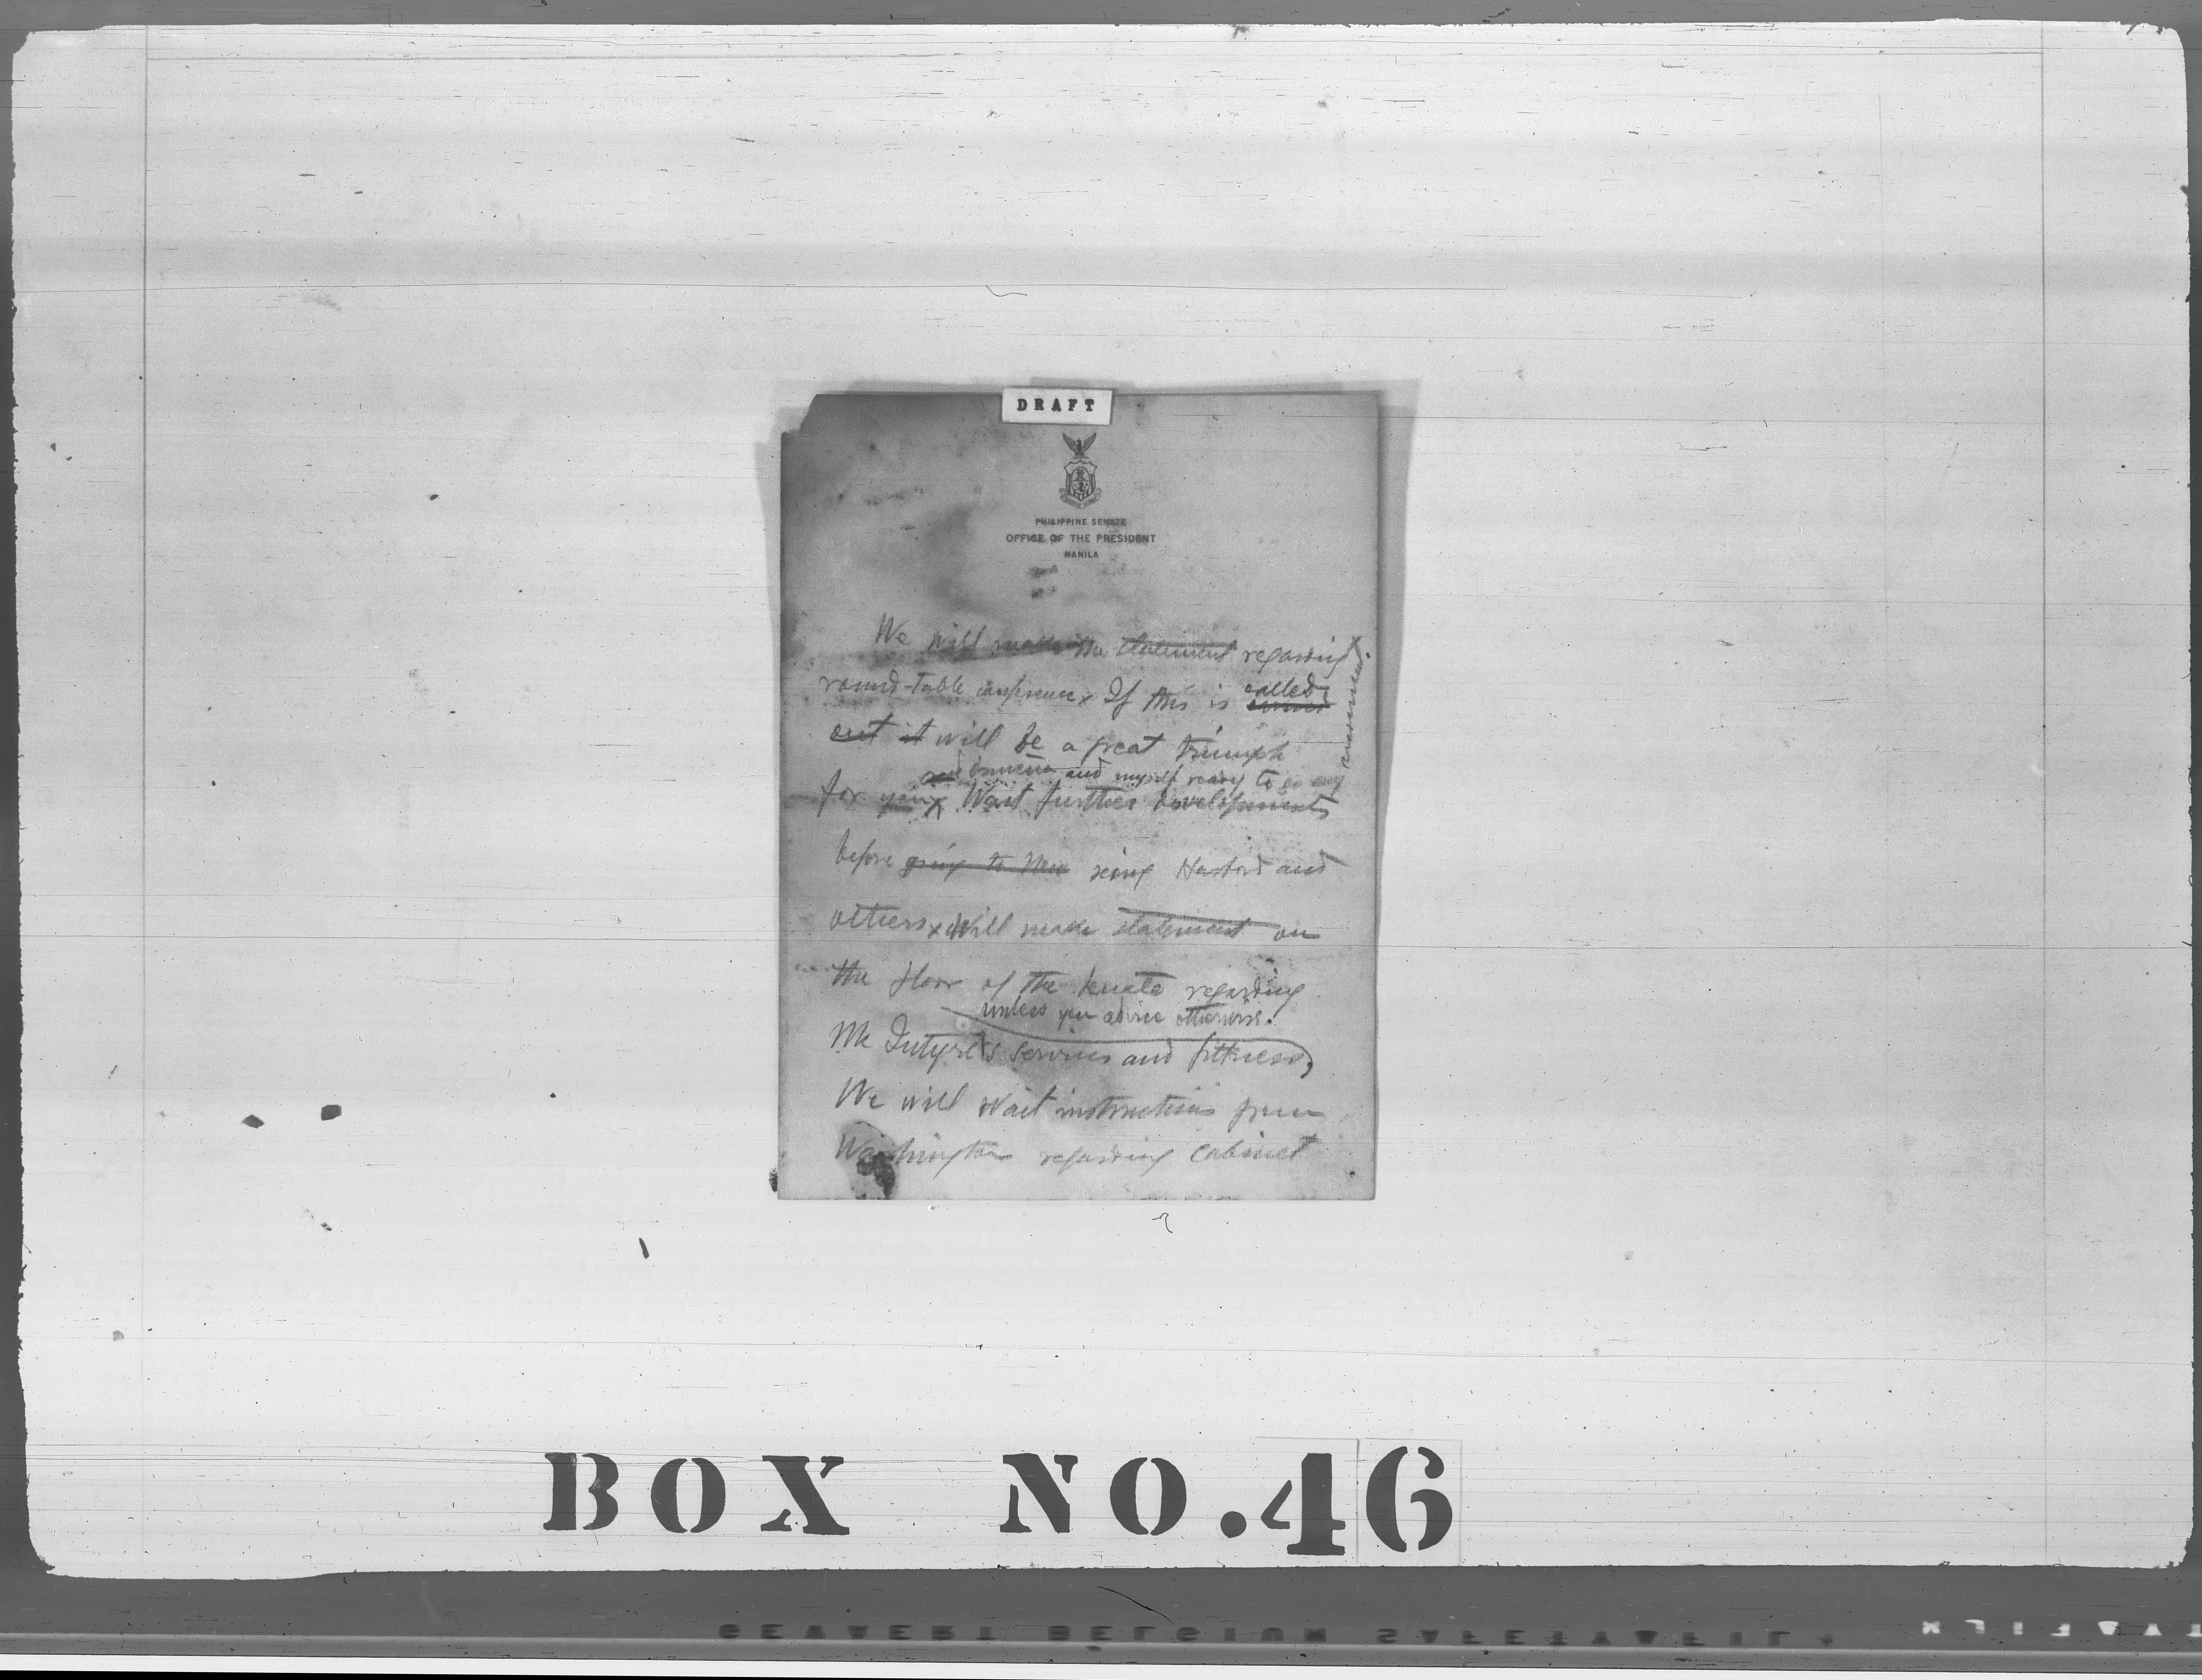 DRAFT
PHILIPPINE SENATE
OFFICE OF THE PRESIDENT
MANILA
We will make the statement regarding
round-table conference x If this is called
out it will be a great triumph
and myself ready to go any
for you x Wait further developments
before going to New seing Harbord and
others x Will make statement on
the floor of the Senate regarding
unless you advice otherwise.
McIntyre's services and fittness,
We will wait instructions from
Washington regarding cabinet
BOX NO.46
GEVAERT BELGIUM SAFETY FILM